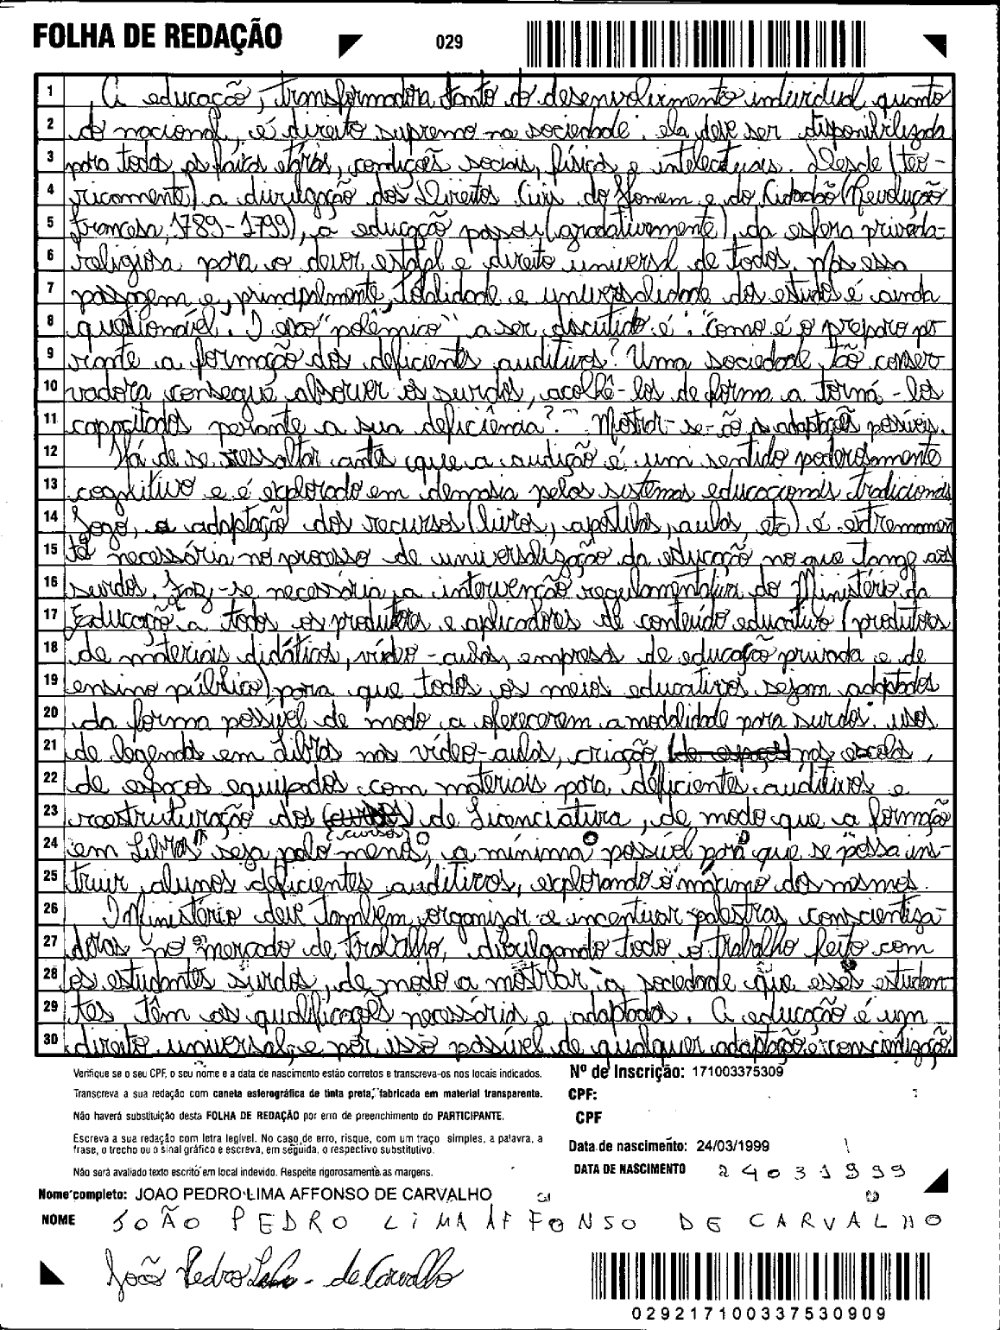 FOLHA DE REDAÇÃO
029
1 A educação, transformadora tanto do desenvolvimento individual quanto
2 do nacional, é direito supremo na sociedade: ela deve ser disponibilizada
3 para todas as faixas etárias, condições sociais, físicas e intelectuais. Desde (teo-
4 ricamente) a divulgação dos Direitos Civis do Homem e do Cidadão (Revolução
5 francesa, 1789-1799), a educação passou (gradativamente), da esfera privada-
6 religiosa para o dever estatal e direito universal de todos. Mas essa
7 passagem e, principalmente, totalidade e universalidade dos estudos é ainda
8 questionável. O eixo "polêmico" a ser discutido é: "Como é o preparo pe-
9 rante a formação dos deficientes auditivos? Uma sociedade tão conser
10 vadora consegue absorver os surdos, acolhê-los de forma a torná-los
11 capacitados perante a sua deficiência?" Mostrar-se-ão as adaptações possíveis.
12 Há de se ressaltar antes que a audição é um sentido poderosamente
13 cognitivo e é explorado em demasia pelos sistemas educacionais tradicionais
14 Logo, a adaptação dos recursos (livros, apostilas, aulas, etc) é extremamen
15 te necessária no processo de universalização da educação no que tange aos
16 surdos. Faz-se necessária a intervenção regulamentativa do Ministério da
17 Educação a todos os produtores e aplicadores de conteúdo educativo (produtores
18 de materiais didáticos, vídeo-aulas, empresas de educação privada e de
19 ensino público) para que todos os meios educativos sejam adaptados
20 da forma possível de modo a oferecerem a modalidade para surdos: usos
21 de legendas em Libras nas vídeo-aulas, criação (de espaços) nas escolas,
22 de espaços equipados com materiais para deficientes auditivos e
23 reestruturação dos (cursos) de Licenciatura, de modo que a formação
cursos
24 em Libras seja, pelo menos, a mínima possível para que se possa ins-
25 truir alunos deficientes auditivos, explorando o máximo dos mesmos.
26 O Ministério deve também organizar e incentivar palestras conscientiza-
27 doras no mercado de trabalho, divulgando todo o trabalho feito com
28 os estudantes surdos, de modo a mostrar à sociedade que esses estudan
29 tes têm as qualificações necessárias e adaptadas. A educação é um
30 direito universal, e por isso passível de qualquer adaptação e conscientização.
Verifique se o seu CPF, o seu nome e a data de nascimento estão corretos e transcreva-os nos locais indicados.
Transcreva a sua redação com caneta esferográfica de tinta preta, fabricada em material transparente.
Não haverá substituição desta FOLHA DE REDAÇÃO por erro de preenchimento do PARTICIPANTE.
Escreva a sua redação com letra legível. No caso de erro, risque, com um traço simples, a palavra, a
frase, o trecho ou o sinal gráfico e escreva, em seguida, o respectivo substitutivo.
Não será avaliado texto escrito em local indevido. Respeite rigorosamente as margens.
Nº de Inscrição: 171003375309
CPF:
CPF
Data de nascimento: 24/03/1999
DATA DE NASCIMENTO 24031999
Nome completo: JOAO PEDRO LIMA AFFONSO DE CARVALHO
NOME JOÃO PEDRO LIMA AFFONSO DE CARVALHO
João Pedro de Carvalho
029217100337530909